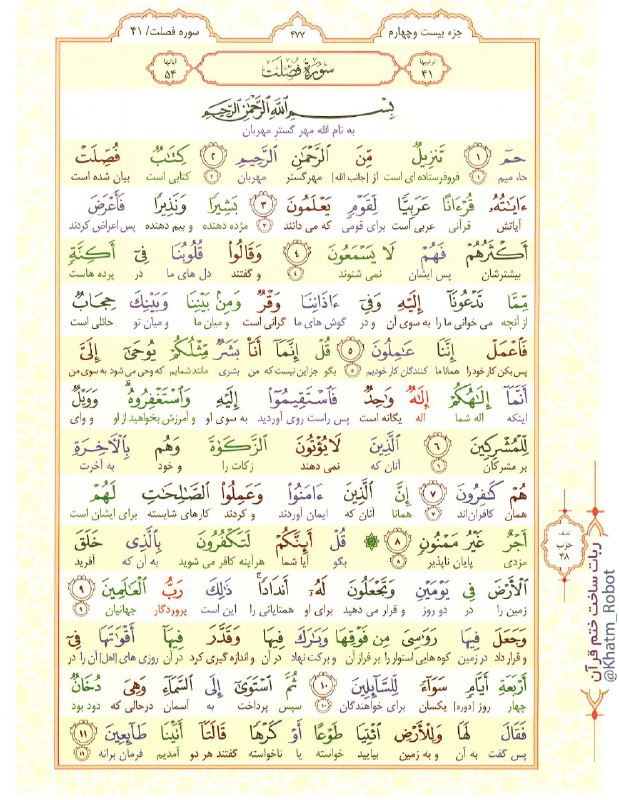 جزء بیست و چهارم
۴۷۷
سوره فصلت/ ۴۱
۴۱
سورة فصلت
آیاتها
۵۴
بِسْمِ اللَّهِ الرَّحْمَٰنِ الرَّحِيمِ
به نام الله مهر گستر مهربان
حمٓ ۱ تَنزِيلٌ مِّنَ الرَّحْمَٰنِ الرَّحِيمِ ۲ كِتَابٌ فُصِّلَتْ
حا، میم ۱ فروفرستاده ای است از [جانب الله] مهرگستر مهربان ۲ کتابی است بیان شده است
ءَايَاتُهُ قُرْءَانًا عَرَبِيًّا لِّقَوْمٍ يَعْلَمُونَ ۳ بَشِيرًا وَنَذِيرًا فَأَعْرَضَ
آیاتش قرآنی عربی است برای قومی که می دانند ۳ مژده دهنده و بیم دهنده پس اعراض کردند
أَكْثَرُهُمْ فَهُمْ لَا يَسْمَعُونَ ۴ وَقَالُوا قُلُوبُنَا فِي أَكِنَّةٍ
بیشترشان پس ایشان نمی شنوند ۴ و گفتند دل های ما در پرده هاست
مِّمَّا تَدْعُونَا إِلَيْهِ وَفِي ءَاذَانِنَا وَقْرٌ وَمِن بَيْنِنَا وَبَيْنِكَ حِجَابٌ
از آنچه می خوانی ما را به سوی آن و در گوش های ما گرانی است و میان ما و میان تو حائلی است
فَاعْمَلْ إِنَّنَا عَامِلُونَ ۵ قُلْ إِنَّمَا أَنَا بَشَرٌ مِّثْلُكُمْ يُوحَىٰ إِلَيَّ
پس بکن کار خود را همانا ما کنندگان کار خودیم ۵ بگو جز این نیست که من بشری مانند شمایم که وحی می شود به سوی من
أَنَّمَا إِلَٰهُكُمْ إِلَٰهٌ وَاحِدٌ فَاسْتَقِيمُوا إِلَيْهِ وَاسْتَغْفِرُوهُ ۗ وَوَيْلٌ
اینکه اله شما اله یگانه است پس راست روی آوردید به سوی او و آمرزش بخواهید از او و وای
لِّلْمُشْرِكِينَ ۶ الَّذِينَ لَا يُؤْتُونَ الزَّكَوٰةَ وَهُم بِالْأَخِرَةِ
بر مشرکان ۶ آنان که نمی دهند زکات را و خود به آخرت
هُمْ كَافِرُونَ ۷ إِنَّ الَّذِينَ ءَامَنُوا وَعَمِلُوا الصَّالِحَاتِ لَهُمْ
همان کافران اند ۷ همانا آنان که ایمان آوردند و کردند کارهای شایسته برای ایشان است
أَجْرٌ غَيْرُ مَمْنُونٍ ۸ قُلْ أَئِنَّكُمْ لَتَكْفُرُونَ بِالَّذِي خَلَقَ
مزدی پایان ناپذیر ۸ بگو آیا شما هرآینه کافر می شوید به آن که آفرید
الْأَرْضَ فِي يَوْمَيْنِ وَتَجْعَلُونَ لَهُ أَندَادًا ۚ ذَٰلِكَ رَبُّ الْعَالَمِينَ ۹
زمین را در دو روز و قرار می دهید برای او همتایانی را این است پروردگار جهانیان ۹
وَجَعَلَ فِيهَا رَوَاسِيَ مِن فَوْقِهَا وَبَارَكَ فِيهَا وَقَدَّرَ فِيهَا أَقْوَاتَهَا فِي
و قرار داد در زمین کوه هایی استوار را بر فراز آن و برکت نهاد در آن و اندازه گیری کرد در آن روزی های [اهل] آن را در
أَرْبَعَةِ أَيَّامٍ سَوَاءً لِّلسَّائِلِينَ ۱۰ ثُمَّ اسْتَوَىٰ إِلَى السَّمَاءِ وَهِيَ دُخَانٌ
چهار روز [دوره] یکسان برای خواهندگان ۱۰ سپس پرداخت به آسمان درحالی که دود بود
فَقَالَ لَهَا وَلِلْأَرْضِ ائْتِيَا طَوْعًا أَوْ كَرْهًا قَالَتَا أَتَيْنَا طَائِعِينَ ۱۱
پس گفت به آن و به زمین بیایید خواسته یا ناخواسته گفتند هر دو آمدیم فرمان برانه ۱۱
نصف
حزب
۴۸
ربات ساخت ختم قرآن
@Khatm_Robot